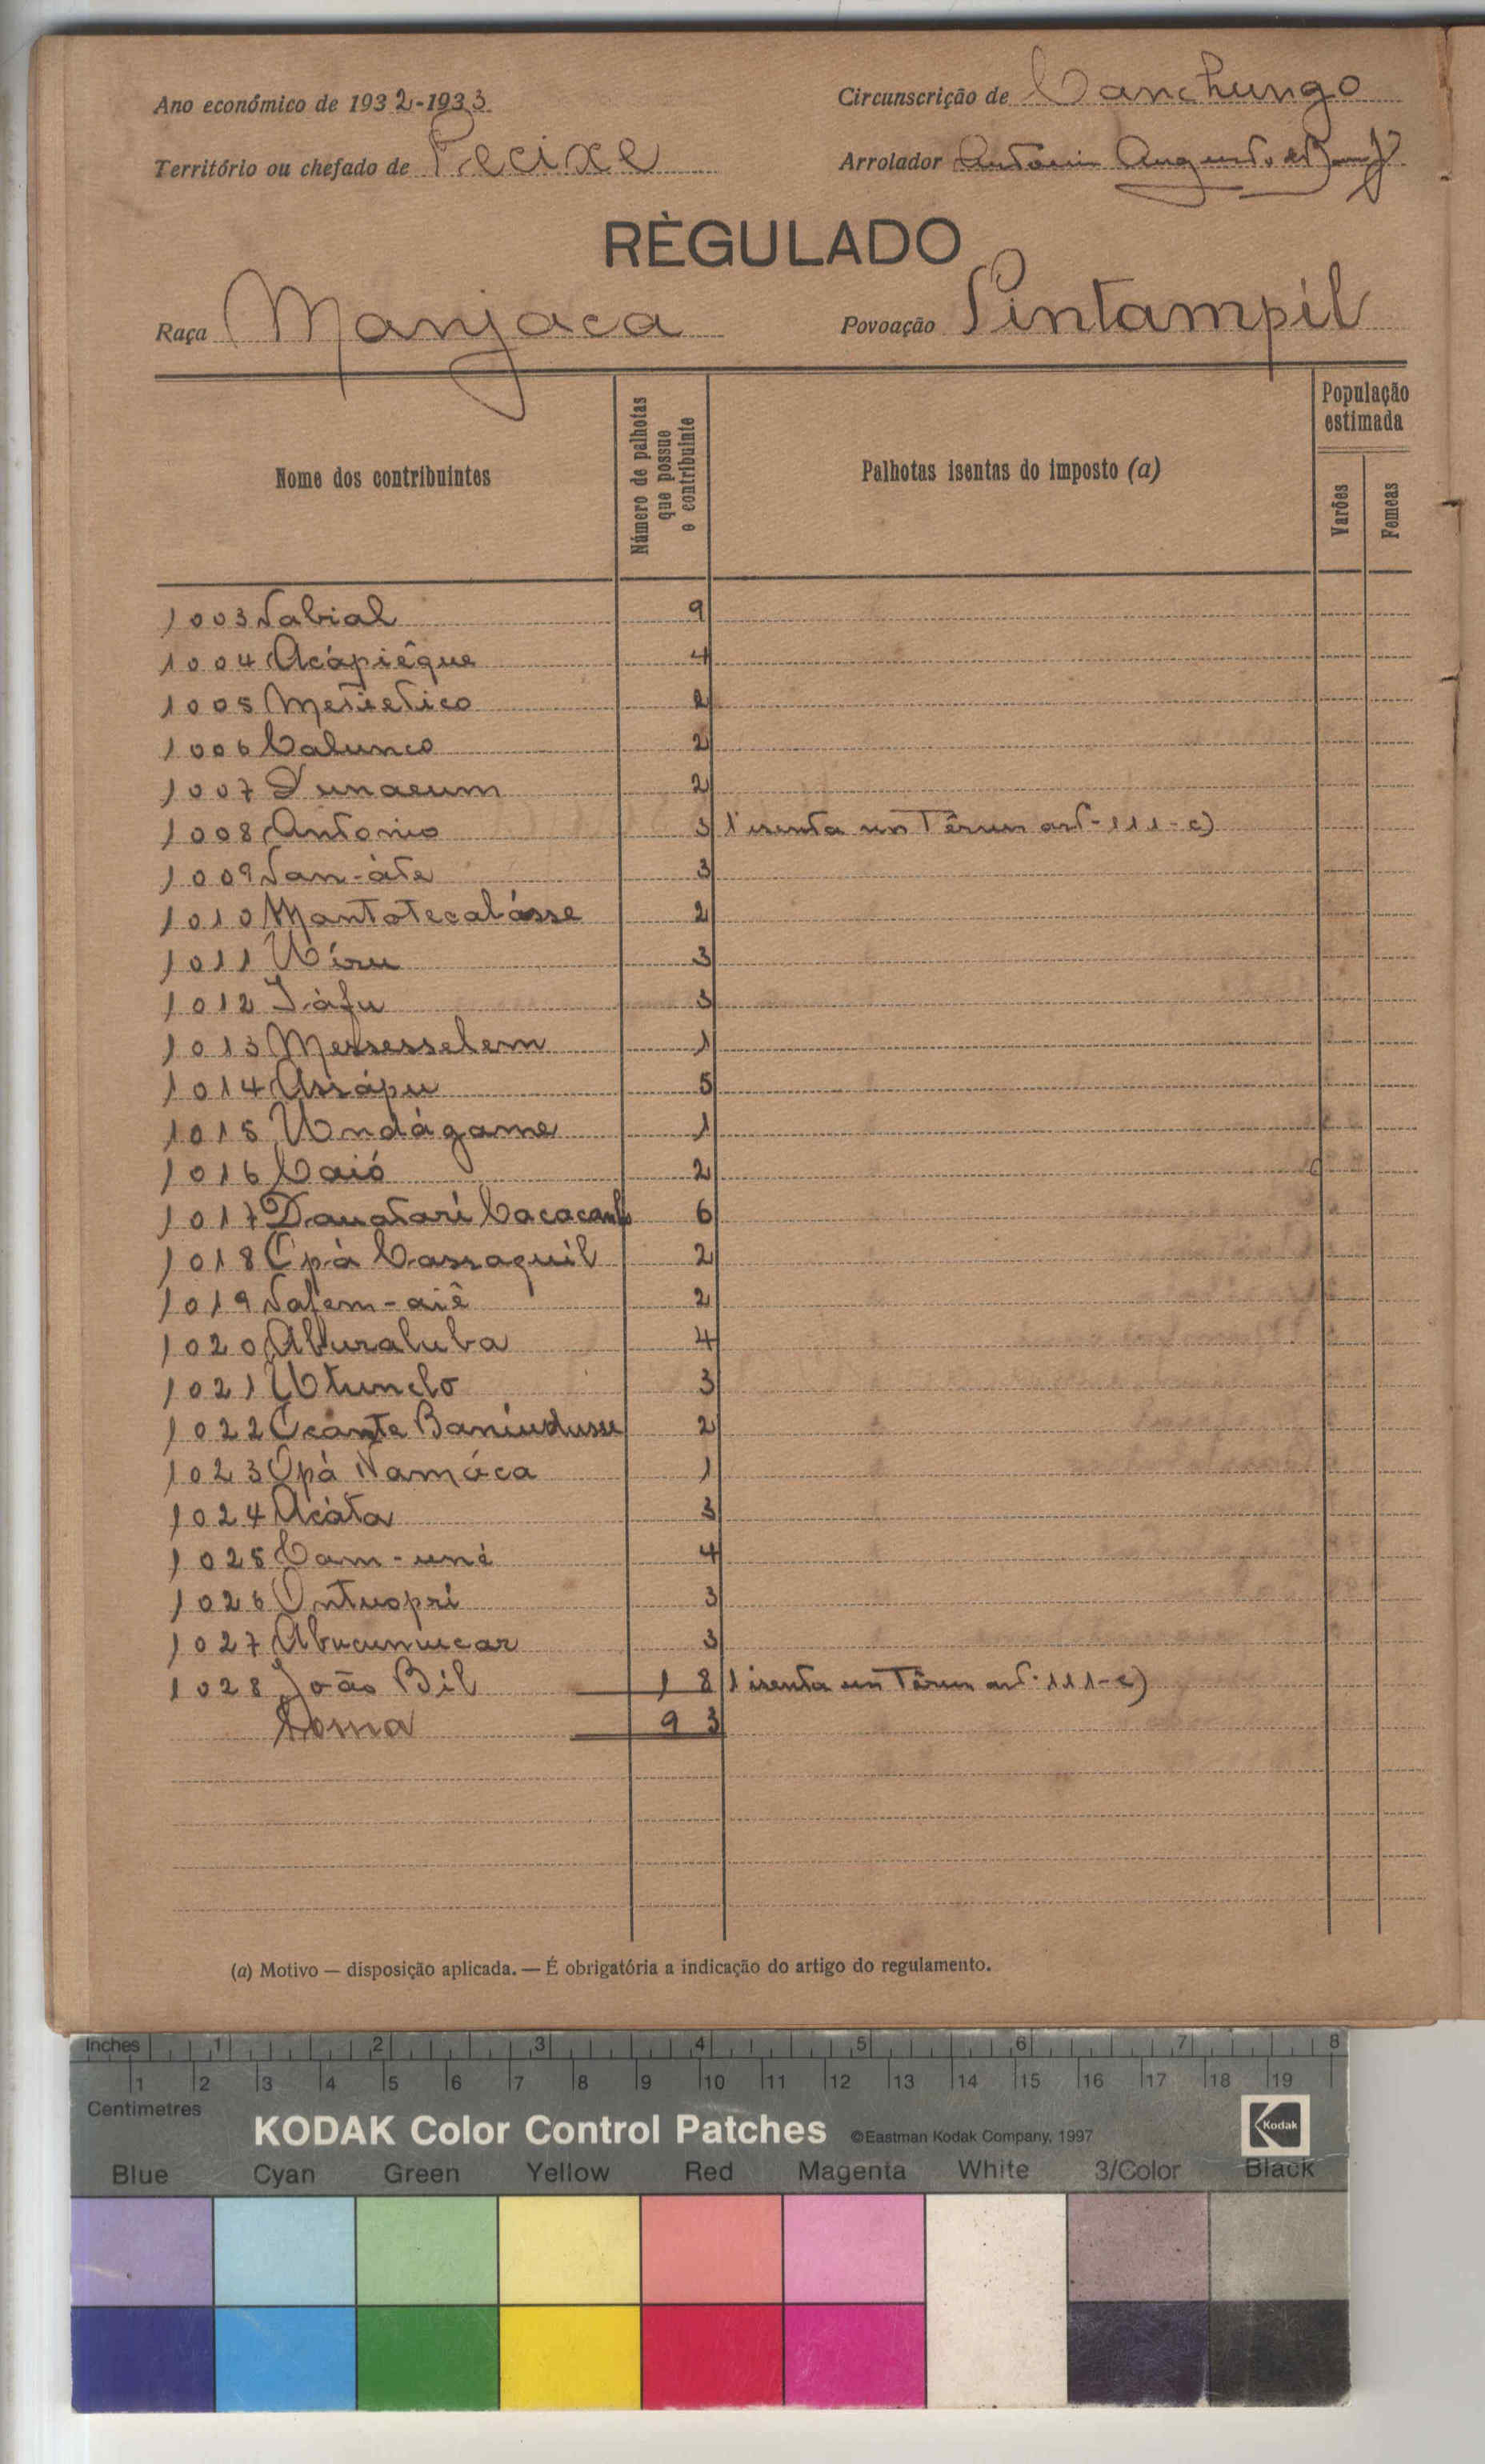 Ano económico de 1932-1933
Circunscrição de Canchungo
Território ou chefado de Pecixe
Arrolador Antonio Augusto de
RÈGULADO
Raça Manjaca
Povoação Pintampil
Nome dos contribuintes
Número de palhotas
que possue
o contribuinte
Palhotas isentas do imposto (a)
População
estimada
Varões
Femeas
1003 Nabial 9
1004 Acápiêque 4
1005 Metietico 2
1006 Calunco 2
1007 2
1008 Antonio 3 1 isenta un Têrun art-111-c)
1009 Nan-áte 3
1010 Mantotecalásse 2
1011 Uíru 3
1012 Jáfu 3
1013 Messesselem 1
1014 Assápu 5
1015 Undágame 1
1016 Caió 2
1017 Dauatari 6
1018 Opà Cassaquil 2
1019 Nafem-aiê 2
1020 Aburaluba 4
1021 Utunclo 3
1022 Ocante 2
1023 Opà Namáca 1
1024 Acáta 3
1025 Cam-uné 4
1026 Ontuopri 3
1027 Abucumucar 3
1028 João Bil 18 1 isenta un Têrun art. 111-c)
Soma 93
(a) Motivo — disposição aplicada. — É obrigatória a indicação do artigo do regulamento.
Inches 1 2 3 4 5 6 7 8
1 2 3 4 5 6 7 8 9 10 11 12 13 14 15 16 17 18 19
Centimetres
KODAK Color Control Patches ©Eastman Kodak Company, 1997 Kodak
Blue Cyan Green Yellow Red Magenta White 3/Color Black